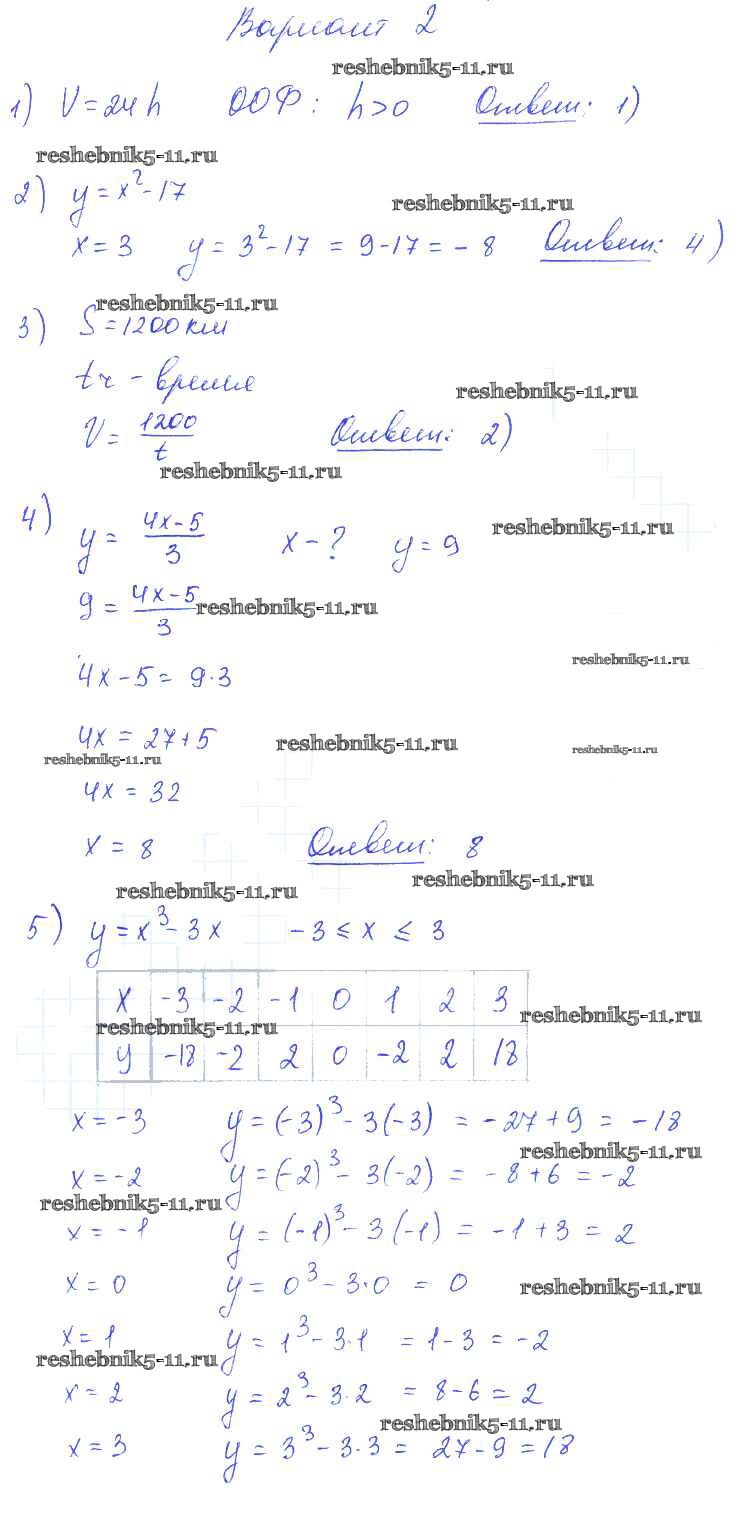 Вариант 2
reshebnik5-11.ru
1) V = 24h ООФ: h>0 Ответ: 1)
reshebnik5-11.ru
2) y = x² - 17
reshebnik5-11.ru
x = 3 y = 3² - 17 = 9 - 17 = - 8 Ответ: 4)
reshebnik5-11.ru
3) S = 1200 км
tч - время
reshebnik5-11.ru
V = 1200/t Ответ: 2)
reshebnik5-11.ru
4) y = (4x - 5)/3 x - ? y = 9
reshebnik5-11.ru
9 = (4x - 5)/3
reshebnik5-11.ru
reshebnik5-11.ru
4x - 5 = 9·3
4x = 27 + 5
reshebnik5-11.ru
reshebnik5-11.ru
reshebnik5-11.ru
4x = 32
x = 8 Ответ: 8
reshebnik5-11.ru
reshebnik5-11.ru
5) y = x³ - 3x - 3 ≤ x ≤ 3
x -3 -2 -1 0 1 2 3
reshebnik5-11.ru
reshebnik5-11.ru
y -18 -2 2 0 -2 2 18
x = -3 y = (-3)³ - 3(-3) = - 27 + 9 = - 18
reshebnik5-11.ru
x = -2 y = (-2)³ - 3(-2) = - 8 + 6 = - 2
reshebnik5-11.ru
x = - 1 y = (-1)³ - 3(-1) = - 1 + 3 = 2
x = 0 y = 0³ - 3·0 = 0
reshebnik5-11.ru
x = 1 y = 1³ - 3·1 = 1 - 3 = - 2
reshebnik5-11.ru
x = 2 y = 2³ - 3·2 = 8 - 6 = 2
reshebnik5-11.ru
x = 3 y = 3³ - 3·3 = 27 - 9 = 18